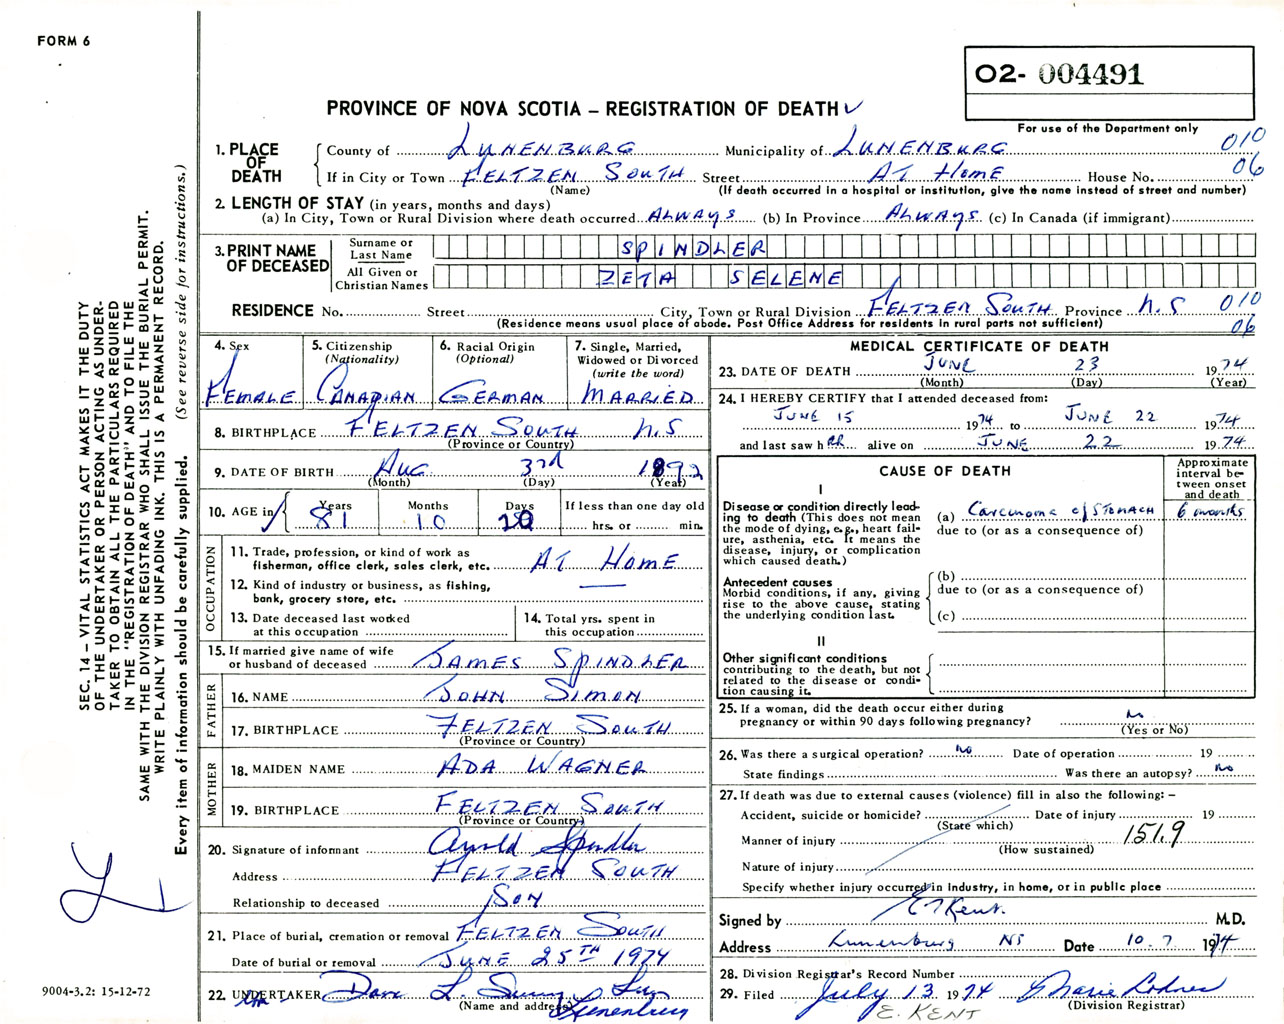 FORM 6
O2- 004491
PROVINCE OF NOVA SCOTIA – REGISTRATION OF DEATH
For use of the Department only
1. PLACE OF DEATH
County of LUNENBURG Municipality of LUNENBURG 010
If in City or Town FELTZEN SOUTH Street AT HOME House No. 06
(Name) (If death occurred in a hospital or institution, give the name instead of street and number)
2. LENGTH OF STAY (in years, months and days)
(a) In City, Town or Rural Division where death occurred ALWAYS (b) In Province ALWAYS (c) In Canada (if immigrant)
3. PRINT NAME OF DECEASED
Surname or Last Name SPINDLER
All Given or Christian Names ZETA SELENE
RESIDENCE No. Street City, Town or Rural Division FELTZEN SOUTH Province N.S 010
(Residence means usual place of abode. Post Office Address for residents in rural parts not sufficient) 06
4. Sex FEMALE
5. Citizenship (Nationality) CANADIAN
6. Racial Origin (Optional) GERMAN
7. Single, Married, Widowed or Divorced (write the word) MARRIED
8. BIRTHPLACE FELTZEN SOUTH N.S
(Province or Country)
9. DATE OF BIRTH AUG 3rd 1892
(Month) (Day) (Year)
10. AGE in Years 81 Months 10 Days 20 If less than one day old hrs. or min.
OCCUPATION
11. Trade, profession, or kind of work as fisherman, office clerk, sales clerk, etc. AT HOME
12. Kind of industry or business, as fishing, bank, grocery store, etc. —
13. Date deceased last worked at this occupation
14. Total yrs. spent in this occupation
15. If married give name of wife or husband of deceased JAMES SPINDLER
FATHER
16. NAME JOHN SIMON
17. BIRTHPLACE FELTZEN SOUTH
(Province or Country)
MOTHER
18. MAIDEN NAME ADA WAGNER
19. BIRTHPLACE FELTZEN SOUTH
(Province or Country)
20. Signature of informant Arnold Spindler
Address FELTZEN SOUTH
Relationship to deceased SON
21. Place of burial, cremation or removal FELTZEN SOUTH
Date of burial or removal JUNE 25TH 1974
22. UNDERTAKER L. Lunenburg
(Name and address)
MEDICAL CERTIFICATE OF DEATH
23. DATE OF DEATH JUNE 23 1974
(Month) (Day) (Year)
24. I HEREBY CERTIFY that I attended deceased from:
JUNE 15 1974 to JUNE 22 1974
and last saw h ER alive on JUNE 22 1974
CAUSE OF DEATH
Approximate interval between onset and death
I
Disease or condition directly leading to death (This does not mean the mode of dying, e.g., heart failure, asthenia, etc. It means the disease, injury, or complication which caused death.)
(a) Carcinoma of STOMACH 6 months
due to (or as a consequence of)
Antecedent causes
Morbid conditions, if any, giving rise to the above cause, stating the underlying condition last.
(b)
due to (or as a consequence of)
(c)
II
Other significant conditions contributing to the death, but not related to the disease or condition causing it.
25. If a woman, did the death occur either during pregnancy or within 90 days following pregnancy? No
(Yes or No)
26. Was there a surgical operation? No Date of operation 19
State findings Was there an autopsy? No
27. If death was due to external causes (violence) fill in also the following: –
Accident, suicide or homicide? Date of injury 19
(State which)
Manner of injury 151.9
(How sustained)
Nature of injury
Specify whether injury occurred in Industry, in home, or in public place
Signed by E Kent. M.D.
Address Lunenburg NS Date 10.7 1974
28. Division Registrar's Record Number
29. Filed July 13 1974 Marie
(Division Registrar)
E. KENT
SEC. 14 – VITAL STATISTICS ACT MAKES IT THE DUTY
OF THE UNDERTAKER OR PERSON ACTING AS UNDER-
TAKER TO OBTAIN ALL THE PARTICULARS REQUIRED
IN THE "REGISTRATION OF DEATH" AND TO FILE THE
SAME WITH THE DIVISION REGISTRAR WHO SHALL ISSUE THE BURIAL PERMIT.
WRITE PLAINLY WITH UNFADING INK. THIS IS A PERMANENT RECORD.
Every item of information should be carefully supplied. (See reverse side for instructions.)
9004-3.2: 15-12-72